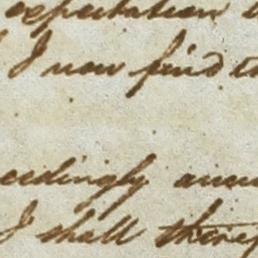 expectation
I now find th
eedingly anno
I shall theref